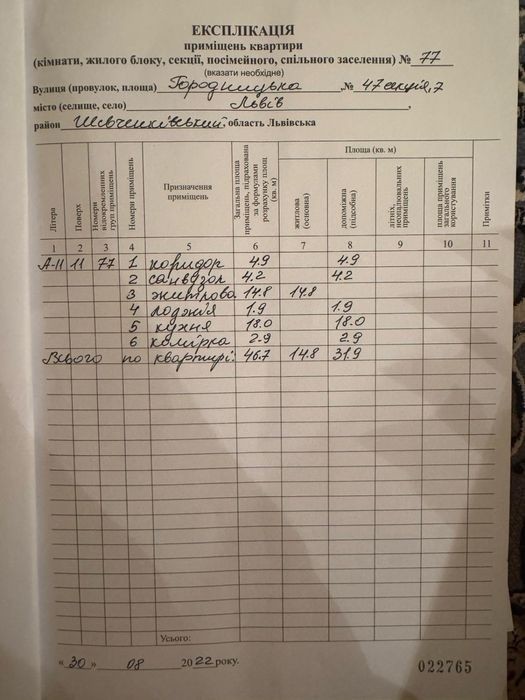 ЕКСПЛІКАЦІЯ
приміщень квартири
(кімнати, жилого блоку, секції, посімейного, спільного заселення) № 77
(вказати необхідне)
Вулиця (провулок, площа) Городницька , № 47 секція, 7
місто (селище, село) Львів ,
район Шевченківський, область Львівська
Літера
Поверх
Номери відокремлених груп приміщень
Номери приміщень
Призначення приміщень
Загальна площа приміщень, підрахована за формулами розрахунку площ (кв. м)
Площа (кв. м)
житлова (основна)
допоміжна (підсобна)
літніх, неопалювальних приміщень
площа приміщень загального користування
Примітки
1 2 3 4 5 6 7 8 9 10 11
А-11 11 77 1 коридор 4.9 4.9
2 санвузол 4.2 4.2
3 житлова 14.8 14.8
4 лоджія 1.9 1.9
5 кухня 18.0 18.0
6 комірка 2.9 2.9
Всього по квартирі: 46.7 14.8 31.9
Усього:
« 30 » 08 2022 року.
022765